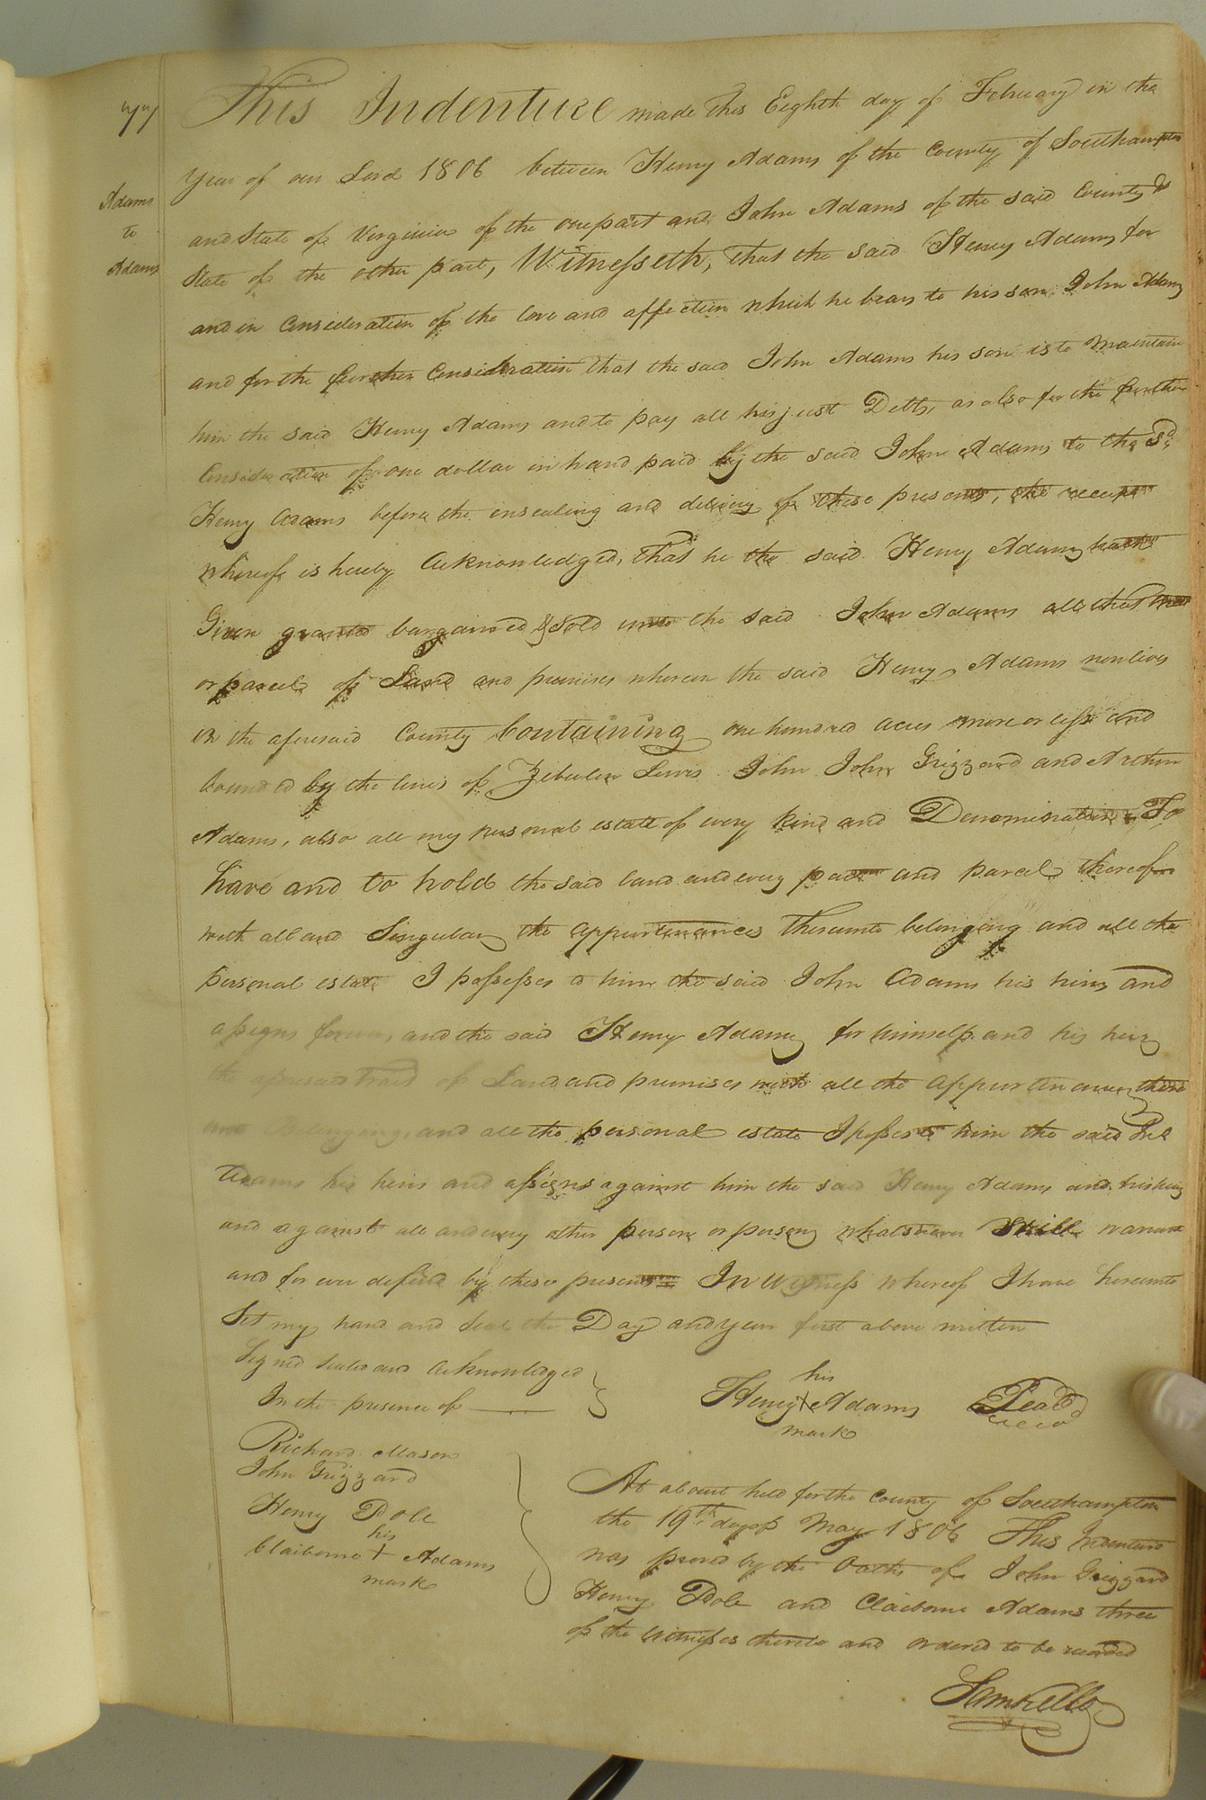 77
Adams
to
Adams
This Indenture made this Eighth day of February in the
Year of our Lord 1806 between Henry Adams of the County of Southampton
and State of Virginia of the one part and John Adams of the said County &
State of the other part, Witnesseth, that the said Henry Adams for
and in Consideration of the love and affection which he bears to his son John Adams
and for the further Consideration that the said John Adams his son is to Maintain
him the said Henry Adams and to pay all his just Debts, as also for the further
Consideration of one dollar in hand paid by the said John Adams to the Sd.
Henry Adams before the ensealing and delivery of these presents, the receipt
whereof is hereby Acknowledged, That he the said Henry Adams hath
Given granted bargained & Sold unto the said John Adams all that tract
or parcel of Land and premises whereon the said Henry Adams now lives
in the aforesaid County Containing one hundred acres more or less and
bounded by the lines of Zebulon Lewis John John Grizzard and Arthur
Adams, also all my personal estate of every kind and Denomination To
have and to hold the said land and every part and parcel thereof
with all and Singular the appurtenances thereunto belonging and all the
personal estate I possesses to him the said John Adams his heirs and
assigns forever, and the said Henry Adams for himself and his heirs
the aforesaid tract of Land and premises with all the appurtenances there
unto Belonging, and all the personal estate I possess to him the said Jno
Adams his heirs and assigns against him the said Henry Adams and his heirs
and against all and every other person or persons whatsoever Shall warrant
and for ever defend by these presents In Witness whereof I have hereunto
Set my hand and Seal the Day and year first above written
Signed Sealed and Acknowledged
In the presence of
his
Henry X Adams Seal
mark
Richard Mason
John Grizzard
Henry Pole
his
Claiborne + Adams
mark
At a Court held for the County of Southampton
the 19th day of May 1806 This Indenture
was proved by the Oaths of John Grizzard
Henry Pole and Claiborne Adams three
of the Witnesses thereto and ordered to be recorded